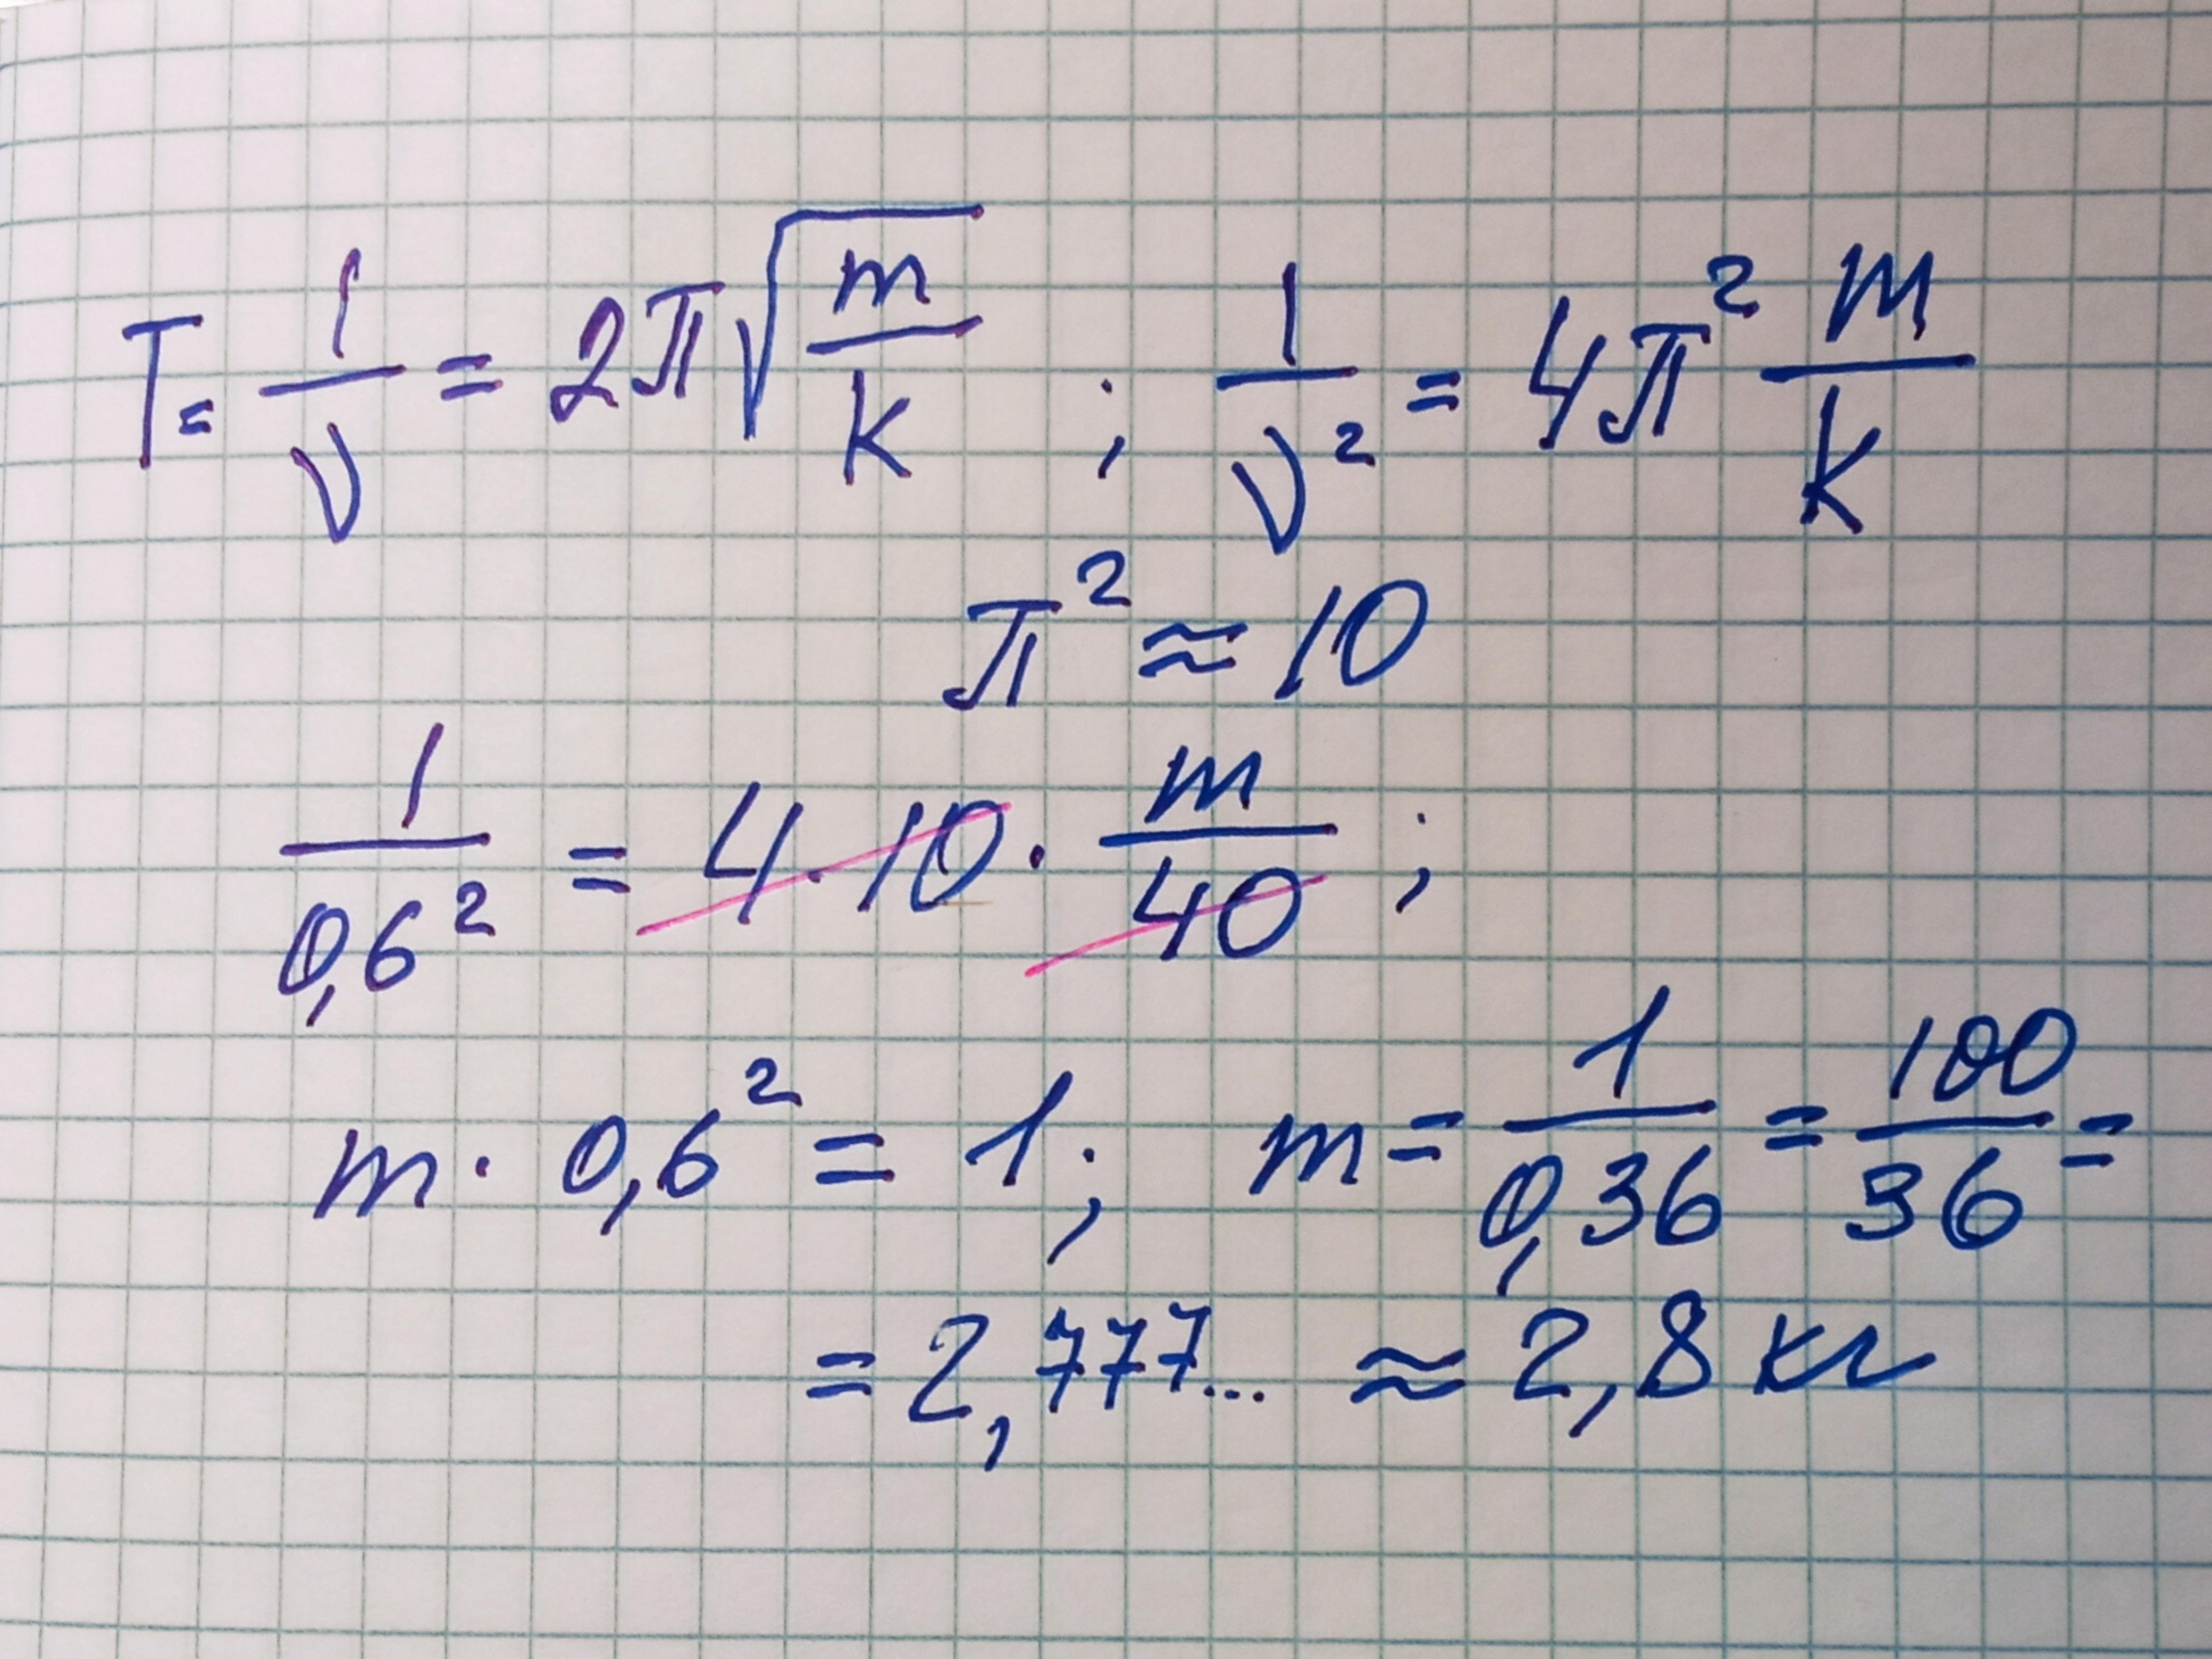 T = 1/ν = 2π√(m/k) ; 1/ν² = 4π² m/k
π² ≈ 10
1/0,6² = 4·10 · m/40 ;
m · 0,6² = 1 ; m = 1/0,36 = 100/36 =
= 2,777... ≈ 2,8 кг